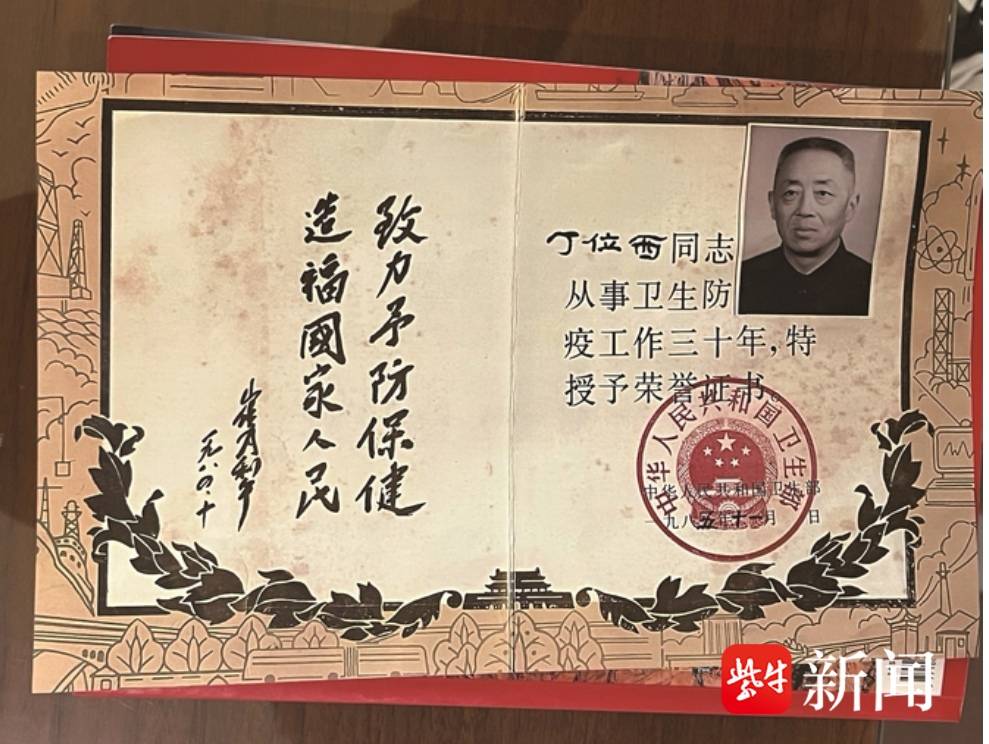 致力予防保健
造福國家人民
崔月犁
一九八四·十
丁位西同志
从事卫生防
疫工作三十年,特
授予荣誉证书。
中华人民共和国卫生部
中华人民共和国卫生部
一九八五年十一月 日
紫牛新闻